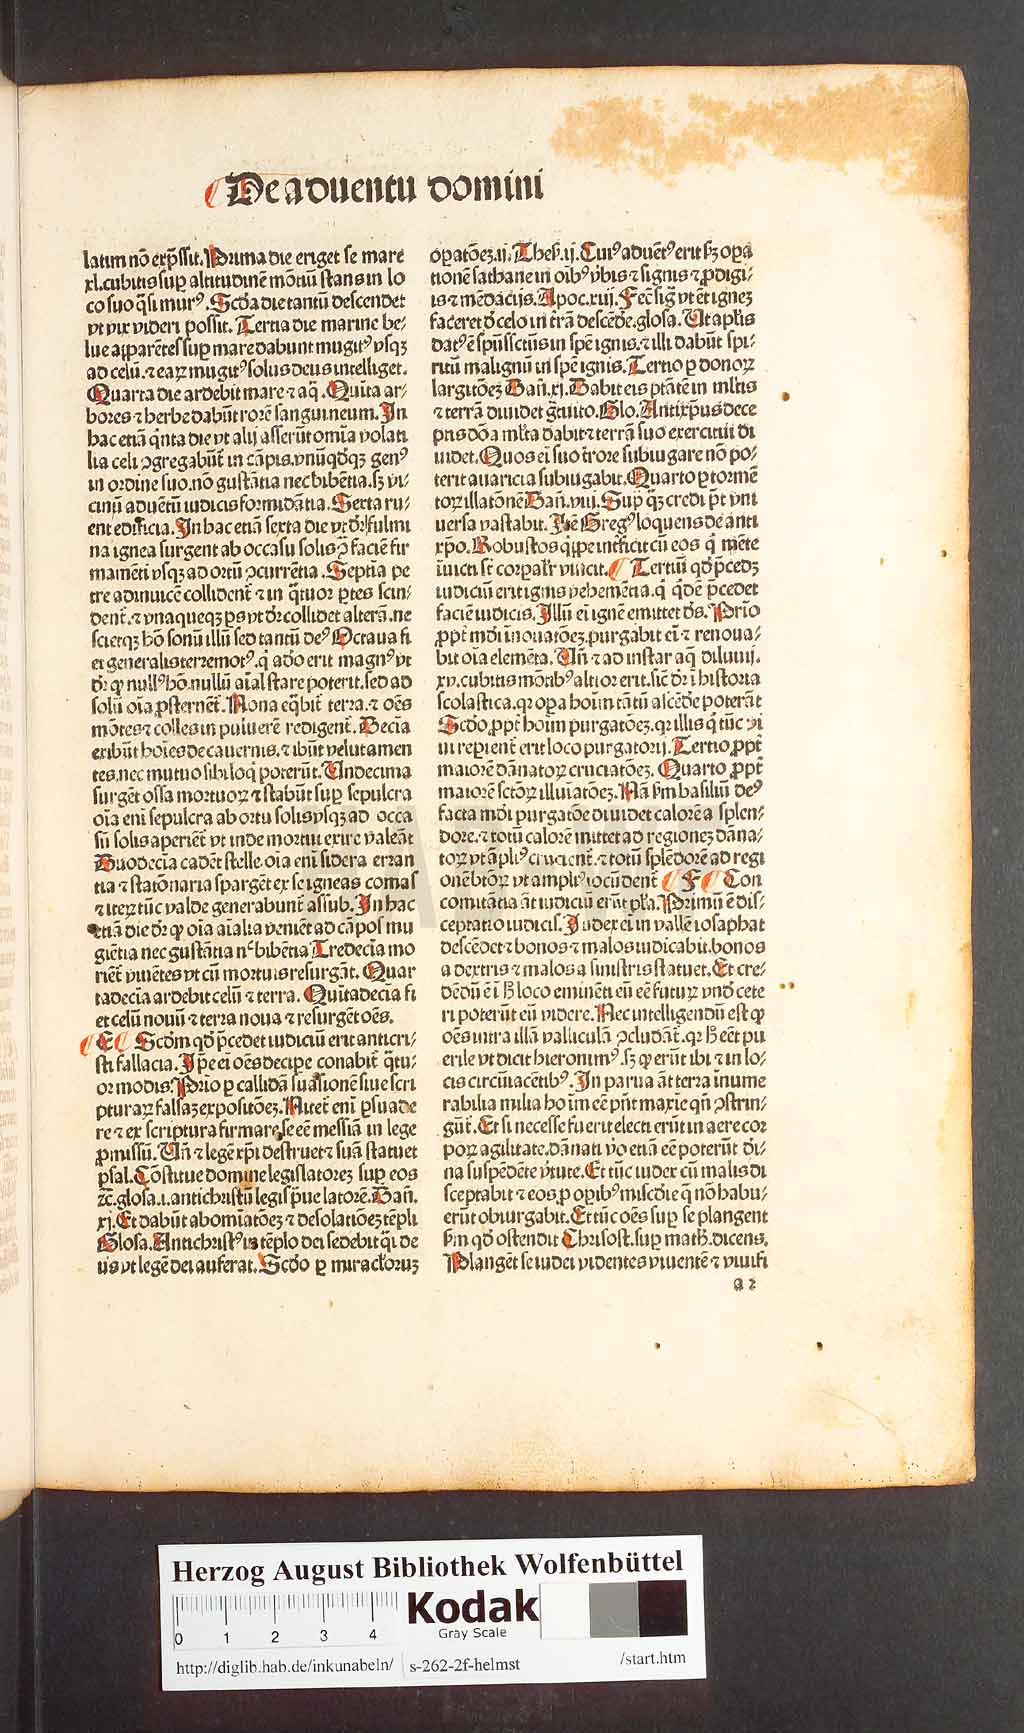 De aduentu domini
latim nō exp̄ssit. Prima die eriget se mare
xl. cubitis sup̄ altitudinē mōtiū stans in lo
co suo q̄si murꝰ. Scd̄a die tantū descendet
vt vix videri possit. Tertia die marine be/
lue apparētes sup̄ mare dabunt mugitꝰ vsqꝫ
ad celū. ⁊ eaꝝ mugitꝰ solus deus intelliget.
Quarta die ardebit mare ⁊ aq̄. Quīta ar/
bores ⁊ herbe dabūt rorē sanguineum. In
hac etiā q̄nta die vt alij asserūt om̄ia volati
lia celi ꝯgregabūt̄ in cāpis. vnūq̄dqꝫ genꝰ
in ordine suo. nō gustātia nec bibētia. sꝫ vi/
cinū aduētū iudicis formidātia. Sexta ru/
ent edificia. In hac etiā sexta die vt dr̄ fulmi
na ignea surgent ab occasu solis ꝯ̄ faciē fir
mamēti vsqꝫ ad ortū ꝯcurrētia. Septīa pe
tre adinuicē collident̄ ⁊ in q̄tuor ꝑtes scin/
dent̄. ⁊ vnaqueqꝫ ꝑs vt dr̄ collidet alterā. ne
scietqꝫ hō sonū illū sed tantū deꝰ Octaua fi
et generalis terremotꝰ. q̄ adeo erit magnꝰ vt
dr̄ ꝙ nullꝰ hō. nullū aīal stare poterit. sed ad
solū oīa ꝓsternēt̄. Nona eq̄bit̄ terra. ⁊ oēs
mōtes ⁊ colles in puluerē redigent̄. Decīa
exibūt hoīes de cauernis. ⁊ ibūt velut amen
tes. nec mutuo sibi loq̄ poterūt. Vndecima
surgēt ossa mortuoꝝ ⁊ stabūt sup̄ sepulcra
oīa eni sepulcra ab ortu solis vsqꝫ ad occa
sū solis aperiēt̄ vt inde mortui exire valeāt
Duodecīa cadēt stelle. oīa enī sidera erran
tia ⁊ statōnaria spargēt ex se igneas comas
⁊ iteꝝ tūc valde generabunt̄ assub. In hac
etiā die dr̄ ꝙ oīa aīalia veniēt ad cāpos mu
giētia nec gustātia nꝰ bibētia Tredecīa mo
riēt̄ viuētes vt cū mortuis resurgāt. Quar
tadecīa ardebit celū ⁊ terra. Quītadecīa fi
et celū nouū ⁊ terra noua ⁊ resurgēt oēs.
E Scd̄m qd̄ p̄cedet iudiciū erit anticri/
sti fallacia. Ip̄e eī oēs decipe conabit̄ q̄tu/
or modis. Prīo ꝑ callidā suasionē siue scri
pturaꝝ falsaꝫ expositōeꝫ. Nitet̄ enī ꝑsuade
re ⁊ ex scriptura firmare se eē messiā in lege
ꝓmissū. Vn̄ ⁊ legē xp̄i destruet ⁊ suā statuet
psal. Cōstitue domine legislatoreꝫ sup̄ eos
⁊c̄. glosa. i. antichristū legis p̄ue latorē. Dan̄.
xj. Et dabūt abomīatōeꝫ ⁊ desolatōeꝫ tēpli
Glosa. Antichristꝰ in tēplo dei sedebit q̄si de
us vt legē dei auferat. Scd̄o ꝑ miraculoruꝫ
oꝑatōeꝫ. ij. Thes̄. ij. Cuiꝰ aduētꝰ erit sꝫ oꝑa
tionē sathane in oībꝰ v̄bis ⁊ signis ⁊ ꝓdigi/
is ⁊ mēdacijs. Apoc. xiij. Fec̄ siḡ vt et igneꝫ
faceret d̄ celo in t̄rā descēdē. glosa. Vt apl̄is
datꝰ ē spūssctūs in spē ignis. ⁊ illi dabūt spi/
ritū malignū in spē ignis. Tertio ꝑ donoꝝ
largitōeꝫ Dan̄. xj. Dabit eis ptātē in ml̄tis
⁊ terrā diuidet ḡtuito. Glo. Antixp̄us dece
ptis dōa ml̄ta dabit ⁊ terrā suo exercitui di
uidet. Quos eī suo t̄rore subiugare nō po/
terit auaricia subiugabit. Quarto ꝑ tormē
toꝝ illatōnē Dan̄. viij. Sup̄ q̄ꝫ credi p̄t vni
uersa vastabit. Itē Gregꝰ loquens de anti
xp̄o. Robustos q̄ppe interficit cū eos q̄ mēte
īuicti sēt corpalr̄ vincit. Tertiū qd̄ p̄cedꝫ
iudiciū erit ignis vehemētia. q̄ q̄dē p̄cedet
faciē iudicis. Illū eī ignē emittet ds̄. Prīo
ꝓpt̄ mōi inouatōeꝫ. purgabit eī ⁊ renoua/
bit oīa elemēta. Vn̄ ⁊ ad instar aq̄ diluuij.
xv. cubitis mōtibꝰ altior erit. sic̄ dr̄ ī historia
scolastica. qꝛ oꝑa hoīm tātū ascēdē poterāt
Scd̄o ꝓpt̄ hoīm purgatōeꝫ. qꝛ illis q̄ tūc vi
ui repient̄ erit loco purgatorij. Tertio ꝓpt̄
maiorē dānatoꝝ cruciatōeꝫ. Quarto ꝓpt̄
maiorē sctōꝝ illuīatōeꝫ. Nā s̄m basiliū deꝰ
facta mōi purgatōe diuidet calorē a splen/
dore. ⁊ totū calorē mittet ad regioneꝫ dāna/
toꝝ vt āpliꝰ crucient̄. ⁊ totū splēdorē ad regi
onē btōꝝ vt ampliꝰ iocūdent̄ F Con
comitātia āt iudiciū erūt pl̄a. Primū ē dis/
ceptatio iudicis. Iudex eī in valle iosaphat
descēdet ⁊ bonos ⁊ malos iudicabit. bonos
a dextris ⁊ malos a sinistris statuet. Et cre/
dēdū ē ī h̄ loco eminēti eū eē futuꝝ vnd̄ cete
ri poterūt eū videre. Nec intelligendū est ꝙ
oēs intra illā valliculā ꝯcludāt̄. qꝛ h̄ eēt pu
erile vt dicit hieronimꝰ. sꝫ ꝙ erūt ibi ⁊ in lo/
cis circūiacētibꝰ. In parua āt terra īnume
rabilia milia hoīm eē pn̄t maxīe qn̄ ꝯstrin/
gūt̄. Et si necesse fuerit electi erūt in aere cor
poꝝ agilitate. dānati v̄o etiā eē poterūt di/
na suspēdēte v̄tute. Et tūc iudex cū malis di
sceptabit ⁊ eos ꝓ oꝑibꝰ miscd̄ie q̄ nō habu/
erūt obiurgabit. Et tūc oēs sup̄ se plangent
s̄m qd̄ ostendit Chrisost. sup̄ math̄. dicens.
Plangēt se iudei videntes viuentē ⁊ viuifi
a 2
Herzog August Bibliothek Wolfenbüttel
0 1 2 3 4
Kodak
Gray Scale
http://diglib.hab.de/inkunabeln/ s-262-2f-helmst /start.htm